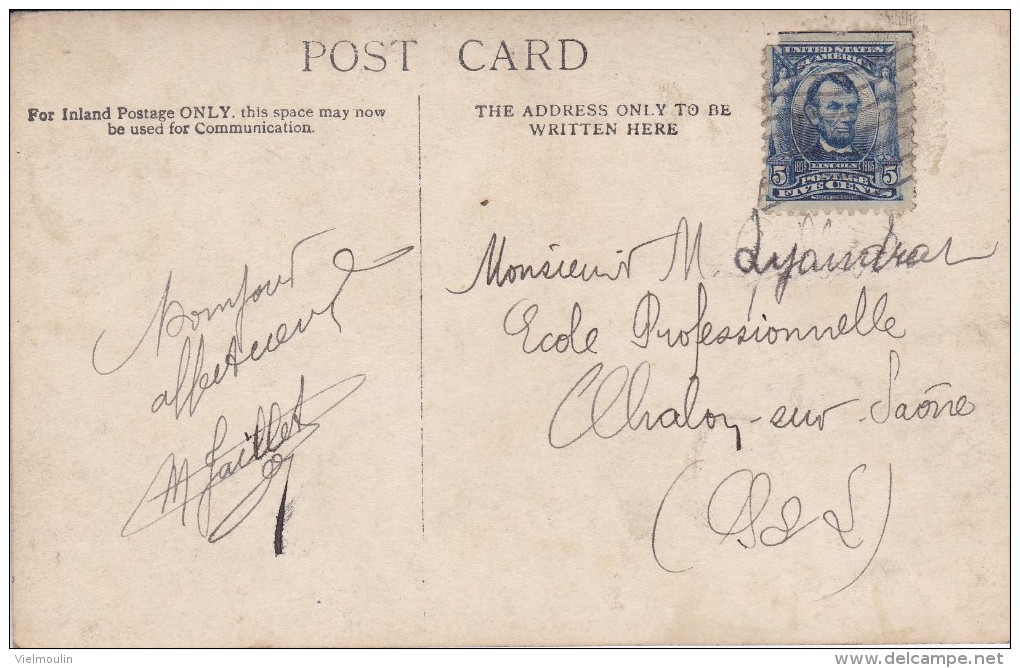 POST CARD
For Inland Postage ONLY, this space may now
be used for Communication.
THE ADDRESS ONLY TO BE
WRITTEN HERE
UNITED STATES
OF AMERICA
LINCOLN
5 POSTAGE 5
FIVE CENTS
Bonjour
affectueux
M Jaillet
Monsieur M.
Ecole Professionnelle
Chalon-sur-Saône
(S & L)
Vielmoulin
www.delcampe.net